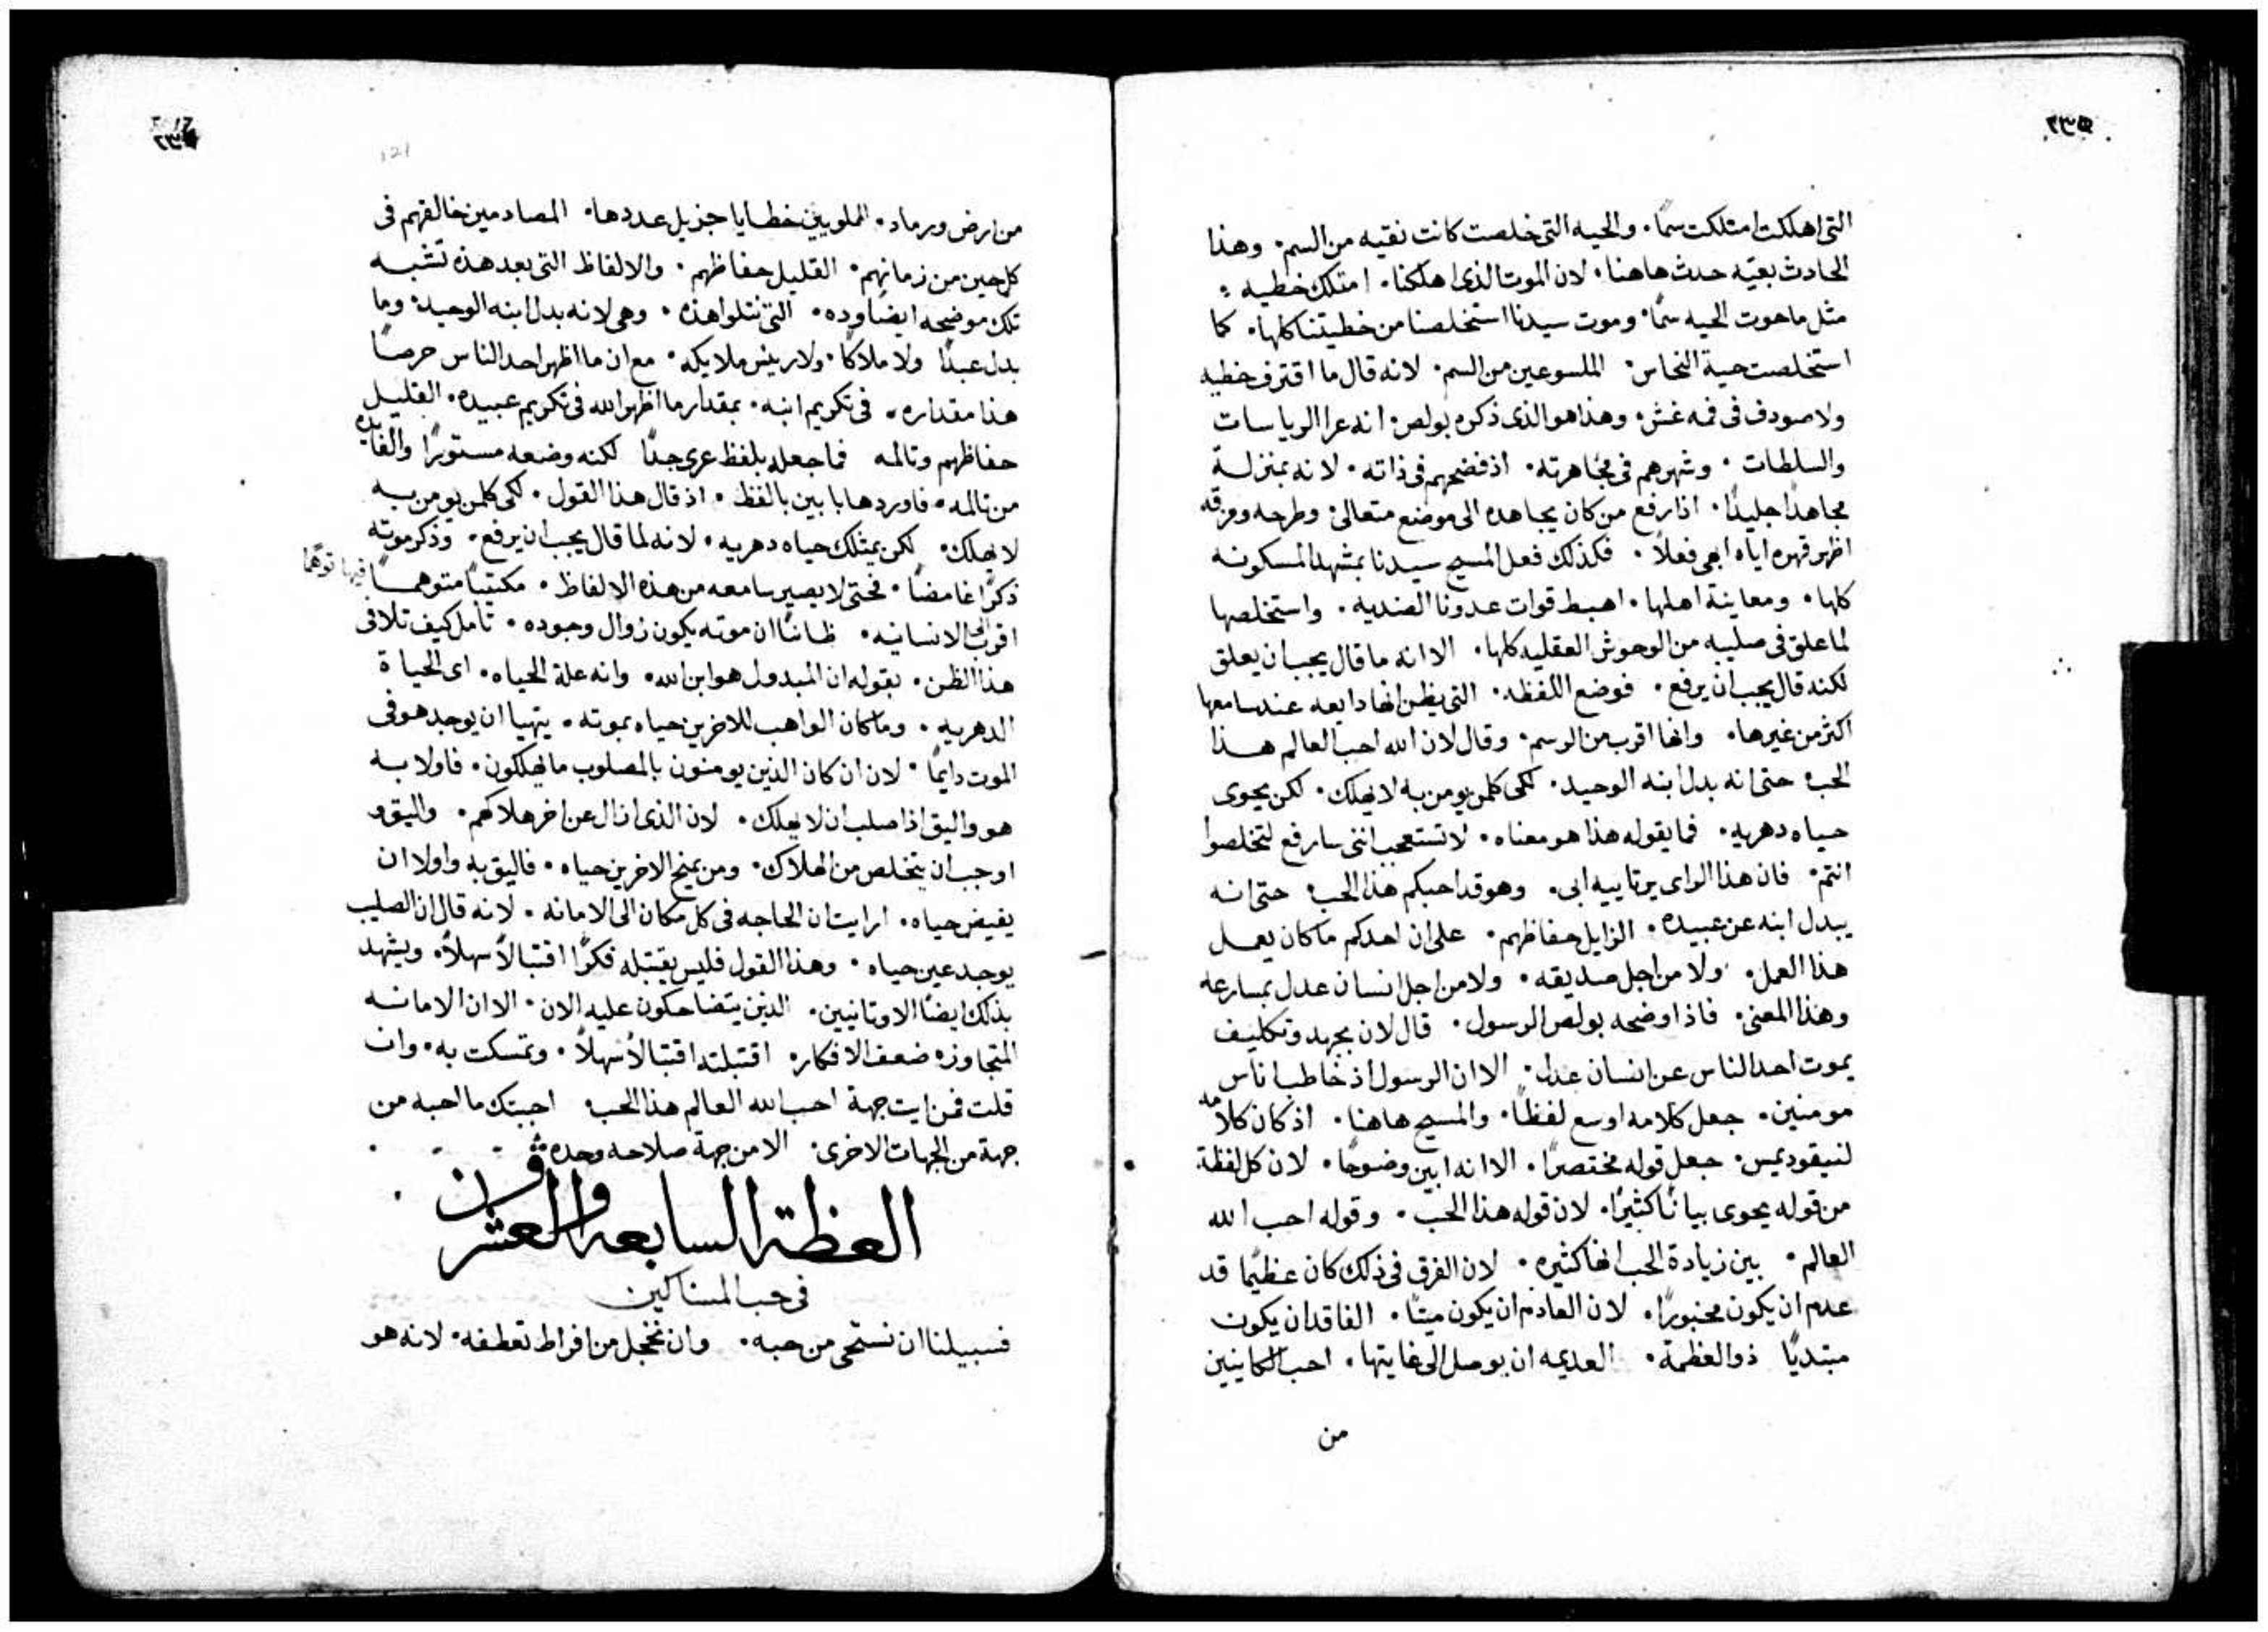 التى اهلكت امتلكت سمًا. والحيه التى خلصت كانت نقيه من السم. وهذا
الحادث بعيّه حدث هاهنا. لان الموت الذى اهلكنا. امتلك خطيه :
مثل ما هوت الحيه سمًا. وموت سيدنا استخلصنا من خطيتنا كلها. كما
استخلصت حية النحاس. الملسوعين من السم. لانه قال ما اقترف خطيه
ولا صودف فى فمه غش. وهذا هو الذى ذكره بولص. انه عرا الرياسات
والسلطات . وشهرهم فى مجاهرته. اذ فضحهم فى ذاته. لانه بمنزلة
مجاهدًا جليدًا. اذا رفع من كان يجاهده الى موضع متعالى. وطرحه ومزقه
اظهر قهره اياه ابهى فعلًا . فكذلك فعل المسيح سيدنا بمشهد المسكونه
كلها. ومعاينة اهلها. اهبط قوات عدونا الضديه. واستخلصها
لما علق فى صليبه من الوحوش العقليه كلها. الا انه ما قال يجب ان يعلق
لكنه قال يجب ان يرفع. فوضع اللفظه. التى يظن انها دايعه عند سامعها
اكثر من غيرها. وانها اقرب من الرسم. وقال لان الله احب العالم هذا
الحب حتى انه بدل ابنه الوحيد. لكى كلمن يومن به لا يهلك. لكن يحوى
حياه دهريه. فما يقوله هذا هو معناه. لا تستعجب اننى سارفع لتخلصوا
انتم. فان هذا الراى يرتاييه ابى. وهو قد احبكم هذا الحب حتى انه
يبدل ابنه عن عبيده. الزايل حفاظهم. على ان احدكم ما كان يعمل
هذا العمل. ولا من اجل صديقه. ولا من اجل انسان عدل بمسارعه
وهذا المعنى. فاذ اوضحه بولص الرسول. قال لان بجهد وتكليف
يموت احد الناس عن انسان عدل. الا ان الرسول اذ خاطب اناس
مومنين. جعل كلامه اوسع لفظًا. والمسيح هاهنا. اذ كان كلامه
لنيقوديمس. جعل قوله مختصرًا. الا انه ابين وضوحًا. لان كل لفظة
من قوله يحوى بيانًا كثيرًا. لان قوله هذا الحب. وقوله احب الله
العالم. بين زيادة الحب انها كثيره. لان الفرق فى ذلك كان عظيمًا قد
عدم ان يكون مخبورًا. لان العادم ان يكون ميتًا. الفاقد ان يكون
مبتديًا ذو العظمة. العديمه ان يوصل الى غايتها. احب الكاينين
من
من ارض ورماد. المملويين خطايا جزيل عددها. المصادمين خالقهم فى
كل حين من زمانهم. القليل حفاظهم. والالفاظ التى بعد هذه تشبه
تلك موضحه ايضا وده. التى تتلوا هذه. وهى لانه بدل ابنه الوحيد. وما
بدل عبدًا ولا ملاكًا. ولا رييس ملايكه. مع ان ما اظهر احد الناس حرصًا
هذا مقداره. فى تكريم ابنه. بمقدار ما اظهر الله فى تكريم عبيده. القليل
حفاظهم وتالمه فما جعله بلفظ عرى جدًا لكنه وضعه مستورًا والفايده
من تالمه. فاوردها بابين بالفظ. اذ قال هذا القول. لكى كلمن يومن به
لا يهلك. لكن يمتلك حياه دهريه. لانه لما قال يجب ان يرفع. وذكر موته
ذكرًا غامضًا. فحتى لا يصير سامعه من هذه الالفاظ. مكتيبًا متوهمًا فيها توهمًا
اقرب الى الانسانيه. ظانًا ان موته يكون زوال وجوده. تامل كيف تلافى
هذا الظن. بقوله ان المبدول هو ابن الله. وانه علة الحياه. اى الحياة
الدهريه. وما كان الواهب للاخرين حياه بموته. يتهيا ان يوجد هو فى
الموت دايمًا. لان ان كان الذين يومنون بالمصلوب ما يهلكون. فاولا به
هو واليق اذا صلب ان لا يهلك. لان الذى ازال عن اخر هلاكهم. واليق و
اوجب ان يتخلص من الهلاك. ومن يمنح الاخرين حياه. فاليق به واولا ان
يفيض حياه. ارايت ان الحاجه فى كل مكان الى الامانه. لانه قال ان الصليب
يوجد عين حياه. وهذا القول فليس يقتبله فكرًا اقتبالًا سهلًا. ويشهد
بذلك ايضًا الاوثانيين. الذين يتضاحكون عليه الان. الا ان الامانه
المتجاوزه ضعف الافكار. اقتبلته اقتبالًا سهلًا. وتمسكت به. وان
قلت فمن ايت جهة احب الله العالم هذا الحب اجبتك ما احبه من
جهة من الجهات الاخرى. الا من جهة صلاحه وحده
العظة السابعه والعشرون
فى حب المساكين
فسبيلنا ان نستحى من حبه. وان نخجل من افراط تعطفه. لانه هو